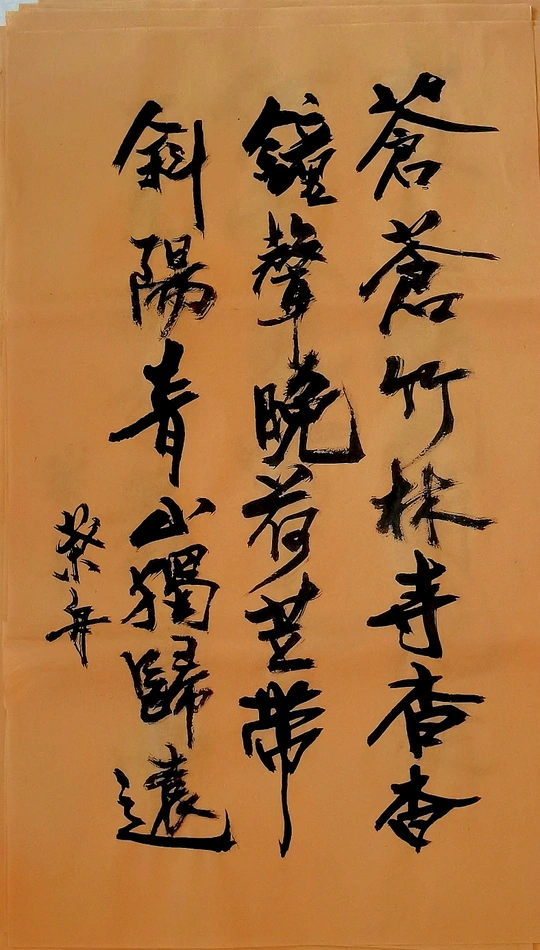 蒼蒼竹林寺杳杳
鐘聲晚荷笠帶
斜陽青山獨歸遠